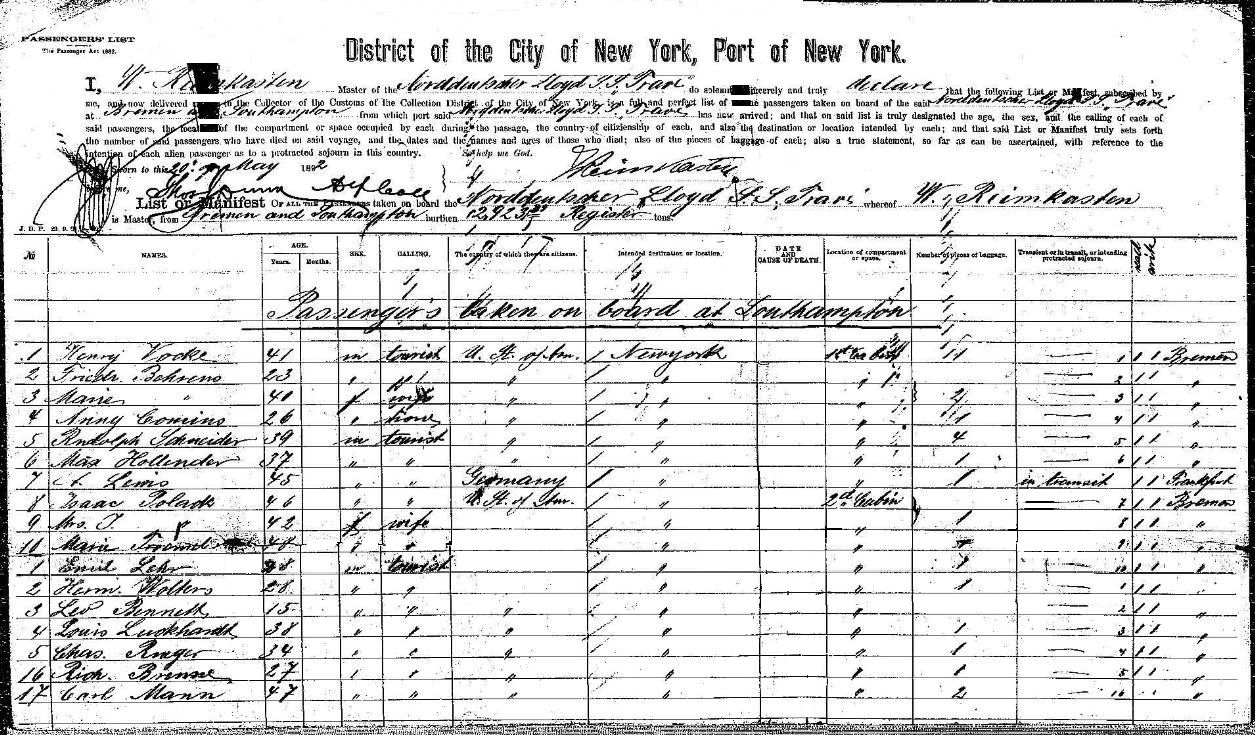 PASSENGERS' LIST
The Passenger Act 1882.
District of the City of New York, Port of New York.
I, W. Reimkasten Master of the Norddeutscher Lloyd S.S. "Trave" do solemnly, sincerely and truly declare that the following List or Manifest, subscribed by
me, and now delivered to the Collector of the Customs of the Collection District of the City of New York, is a full and perfect list of the passengers taken on board of the said Norddeutscher Lloyd S.S. "Trave"
at Bremen and Southampton from which port said Norddeutscher Lloyd S.S. "Trave" has now arrived; and that on said list is truly designated the age, the sex, and the calling of each of
said passengers, the location of the compartment or space occupied by each during the passage, the country of citizenship of each, and also the destination or location intended by each; and that said List or Manifest truly sets forth
the number of said passengers who have died on said voyage, and the dates and the names and ages of those who died; also of the pieces of baggage of each; also a true statement, so far as can be ascertained, with reference to the
intention of each alien passenger as to a protracted sojourn in this country. So help me God.
Sworn to this 20 May 1892
before me, Reimkasten
List or Manifest OF ALL THE PASSENGERS taken on board the Norddeutscher Lloyd S.S. Trave whereof W. Reimkasten
is Master, from Bremen and Southampton burthen Register tons.
J. D. P.
No NAMES. AGE. Years. Months. SEX. CALLING. The country of which they are citizens. Intended destination or location. DATE AND CAUSE OF DEATH. Location of compartment or space. Number of pieces of baggage. Transient or in transit, or intending protracted sojourn.
Passenger's taken on board at Southampton
1 Henry Vocke 41 m tourist U. St. of Am. Newyork 1st Cabin 11 1 11 Bremen
2 Friedr. Behrens 23 " " " " 2 11 "
3 Marie " 40 f wife " " " 2 3 11 "
4 Anny Comins 26 " none " " " 1 4 11 "
5 Rudolph Schneider 39 m tourist " " " 4 5 11 "
6 Max Hollender 37 " " " " " 1 6 11 "
7 A. Lewis 45 " " Germany " " 1 in transit 11 Frankfurt
8 Isaac Polack 46 " " U. St. of Am. " 2d Cabin 7 11 Bremen
9 Mrs. J. " 42 f wife " " 1 8 11 "
10 Marie 48 " " " " 9 11 "
1 Emil Lehr 28 m tourist " " 1 10 11 "
2 Herm. Wolters 28 " " " " 1 1 11 "
3 Leo Bennett 15 " " " " " 2 11 "
4 Louis Luckhardt 38 " " " " " 1 3 11 "
5 Chas. Ringer 34 " " " " " 1 4 11 "
16 Rich. 27 " " " " 1 5 11 "
17 Carl Mann 47 " " " " " 2 16 "